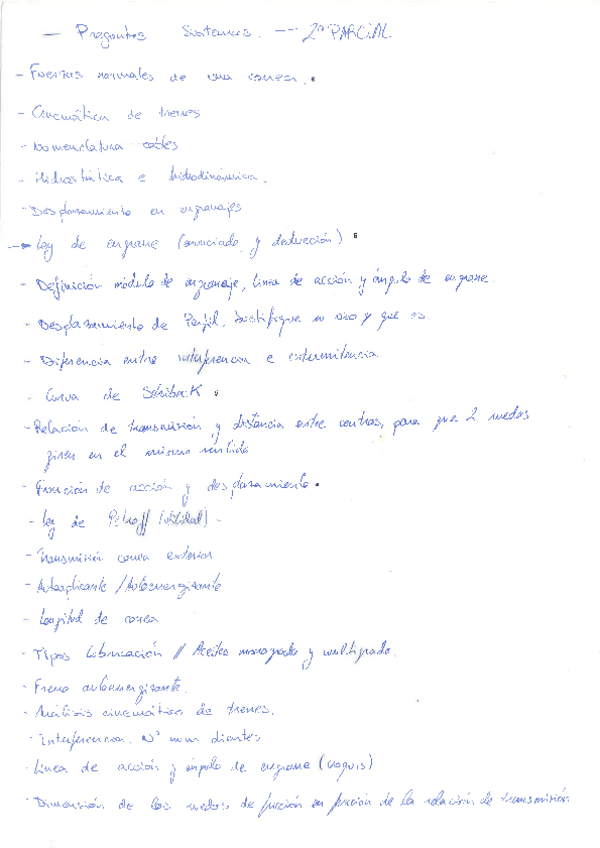 — Preguntas Sistemas. -- 2º PARCIAL.
- Fuerzas normales de una correa.
- Cinemática de trenes
- Nomenclatura cables
- Hidrostática e hidrodinámica.
- Desplazamiento en engranajes
→ Ley de engrane (enunciado y deducción)
- Definición módulo de engranaje, línea de acción y ángulo de engrane.
- Desplazamiento de Perfil. Justifique su uso y que es.
- Diferencia entre interferencia e
- Curva de Stribeck
- Relación de transmisión y distancia entre centros, para que 2 ruedas
giren en el mismo sentido
- de acción y desplazamiento.
- Ley de Petroff (utilidad).
- Transmisión correa
- Autoaplicante / Autoenergizante
- Longitud de correa
- Tipos Lubricación // Aceites monogrado y multigrado.
- Freno autoenergizante.
- Análisis cinemático de trenes.
- Interferencia. Nº min dientes
- Línea de acción y ángulo de engrane (croquis)
- Dimensión de las ruedas de fricción en función de la relación de transmisión